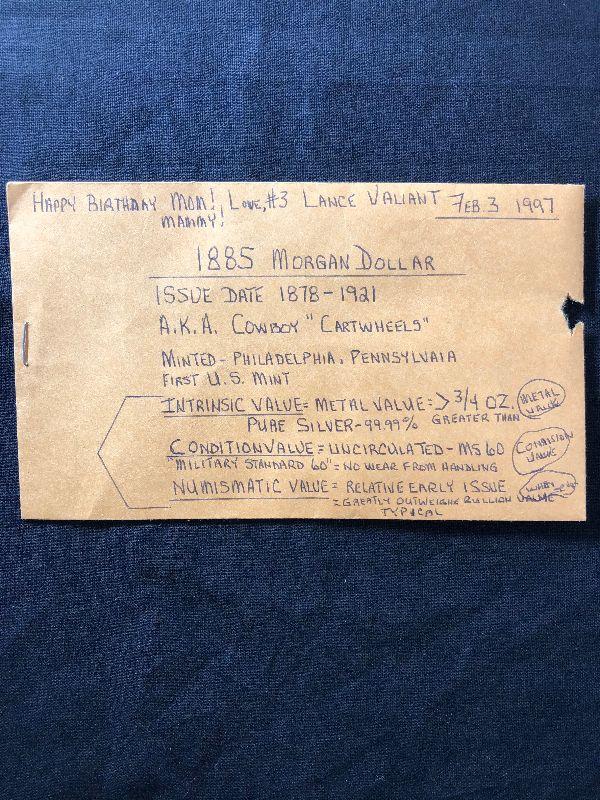 Happy Birthday Mom! Love, #3 Lance Valiant Feb. 3 1997
Mammy!
1885 Morgan Dollar
Issue Date 1878-1921
A.K.A. Cowboy "Cartwheels"
Minted - Philadelphia, Pennsylvaia
First U.S. Mint
Intrinsic Value = Metal Value = > 3/4 oz. Metal Value
Pure Silver - 99.99% Greater than
Condition Value = Uncirculated - MS 60 Condision Value
"Military Standard 60" = No wear from handling
Numismatic Value = Relative Early Issue
= Greatly outweighs bullion Value
Typical